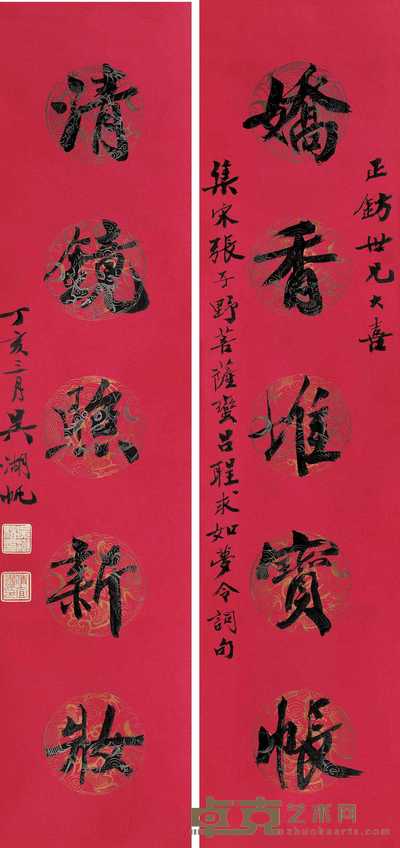 正鈁世兄大喜
嬌香堆寶帳
集宋張子野菩薩蠻呂聖求如夢令詞句
清鏡 新妝
丁亥三月吴湖帆
卓克艺术网